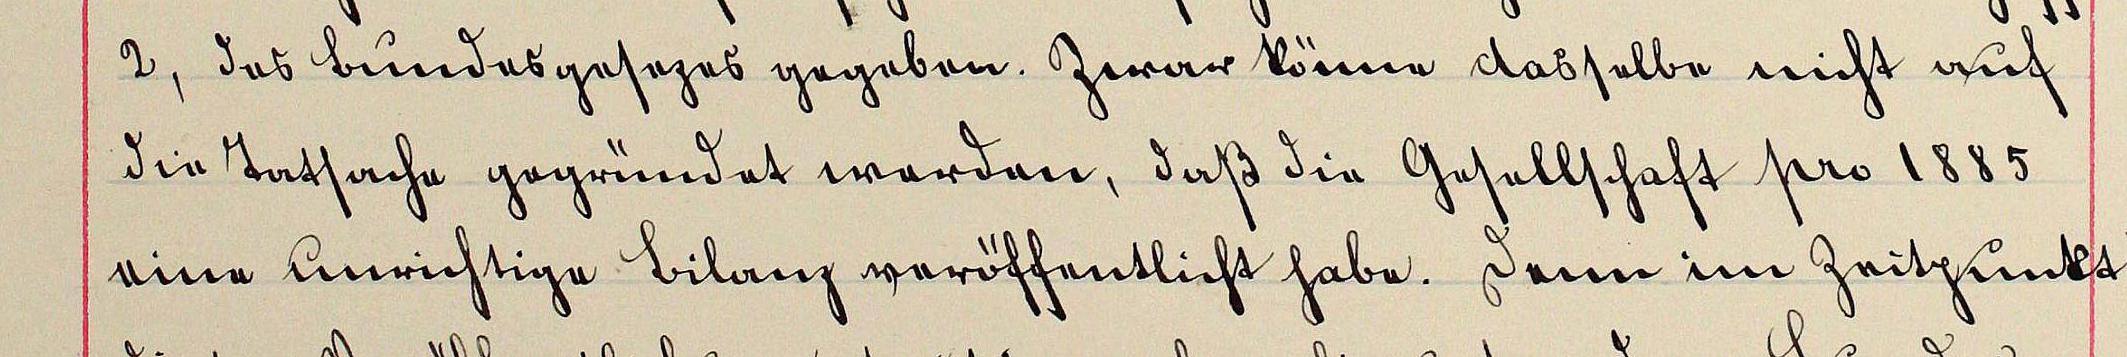 2, des Bundesgesezes gegeben. Zwar könne dasselbe nicht auf
die Tatsache gegründet werden, daß die Gesellschaft pro 1885
eine unrichtige Bilanz veröffentlicht habe. Denn im Zeitpunkt